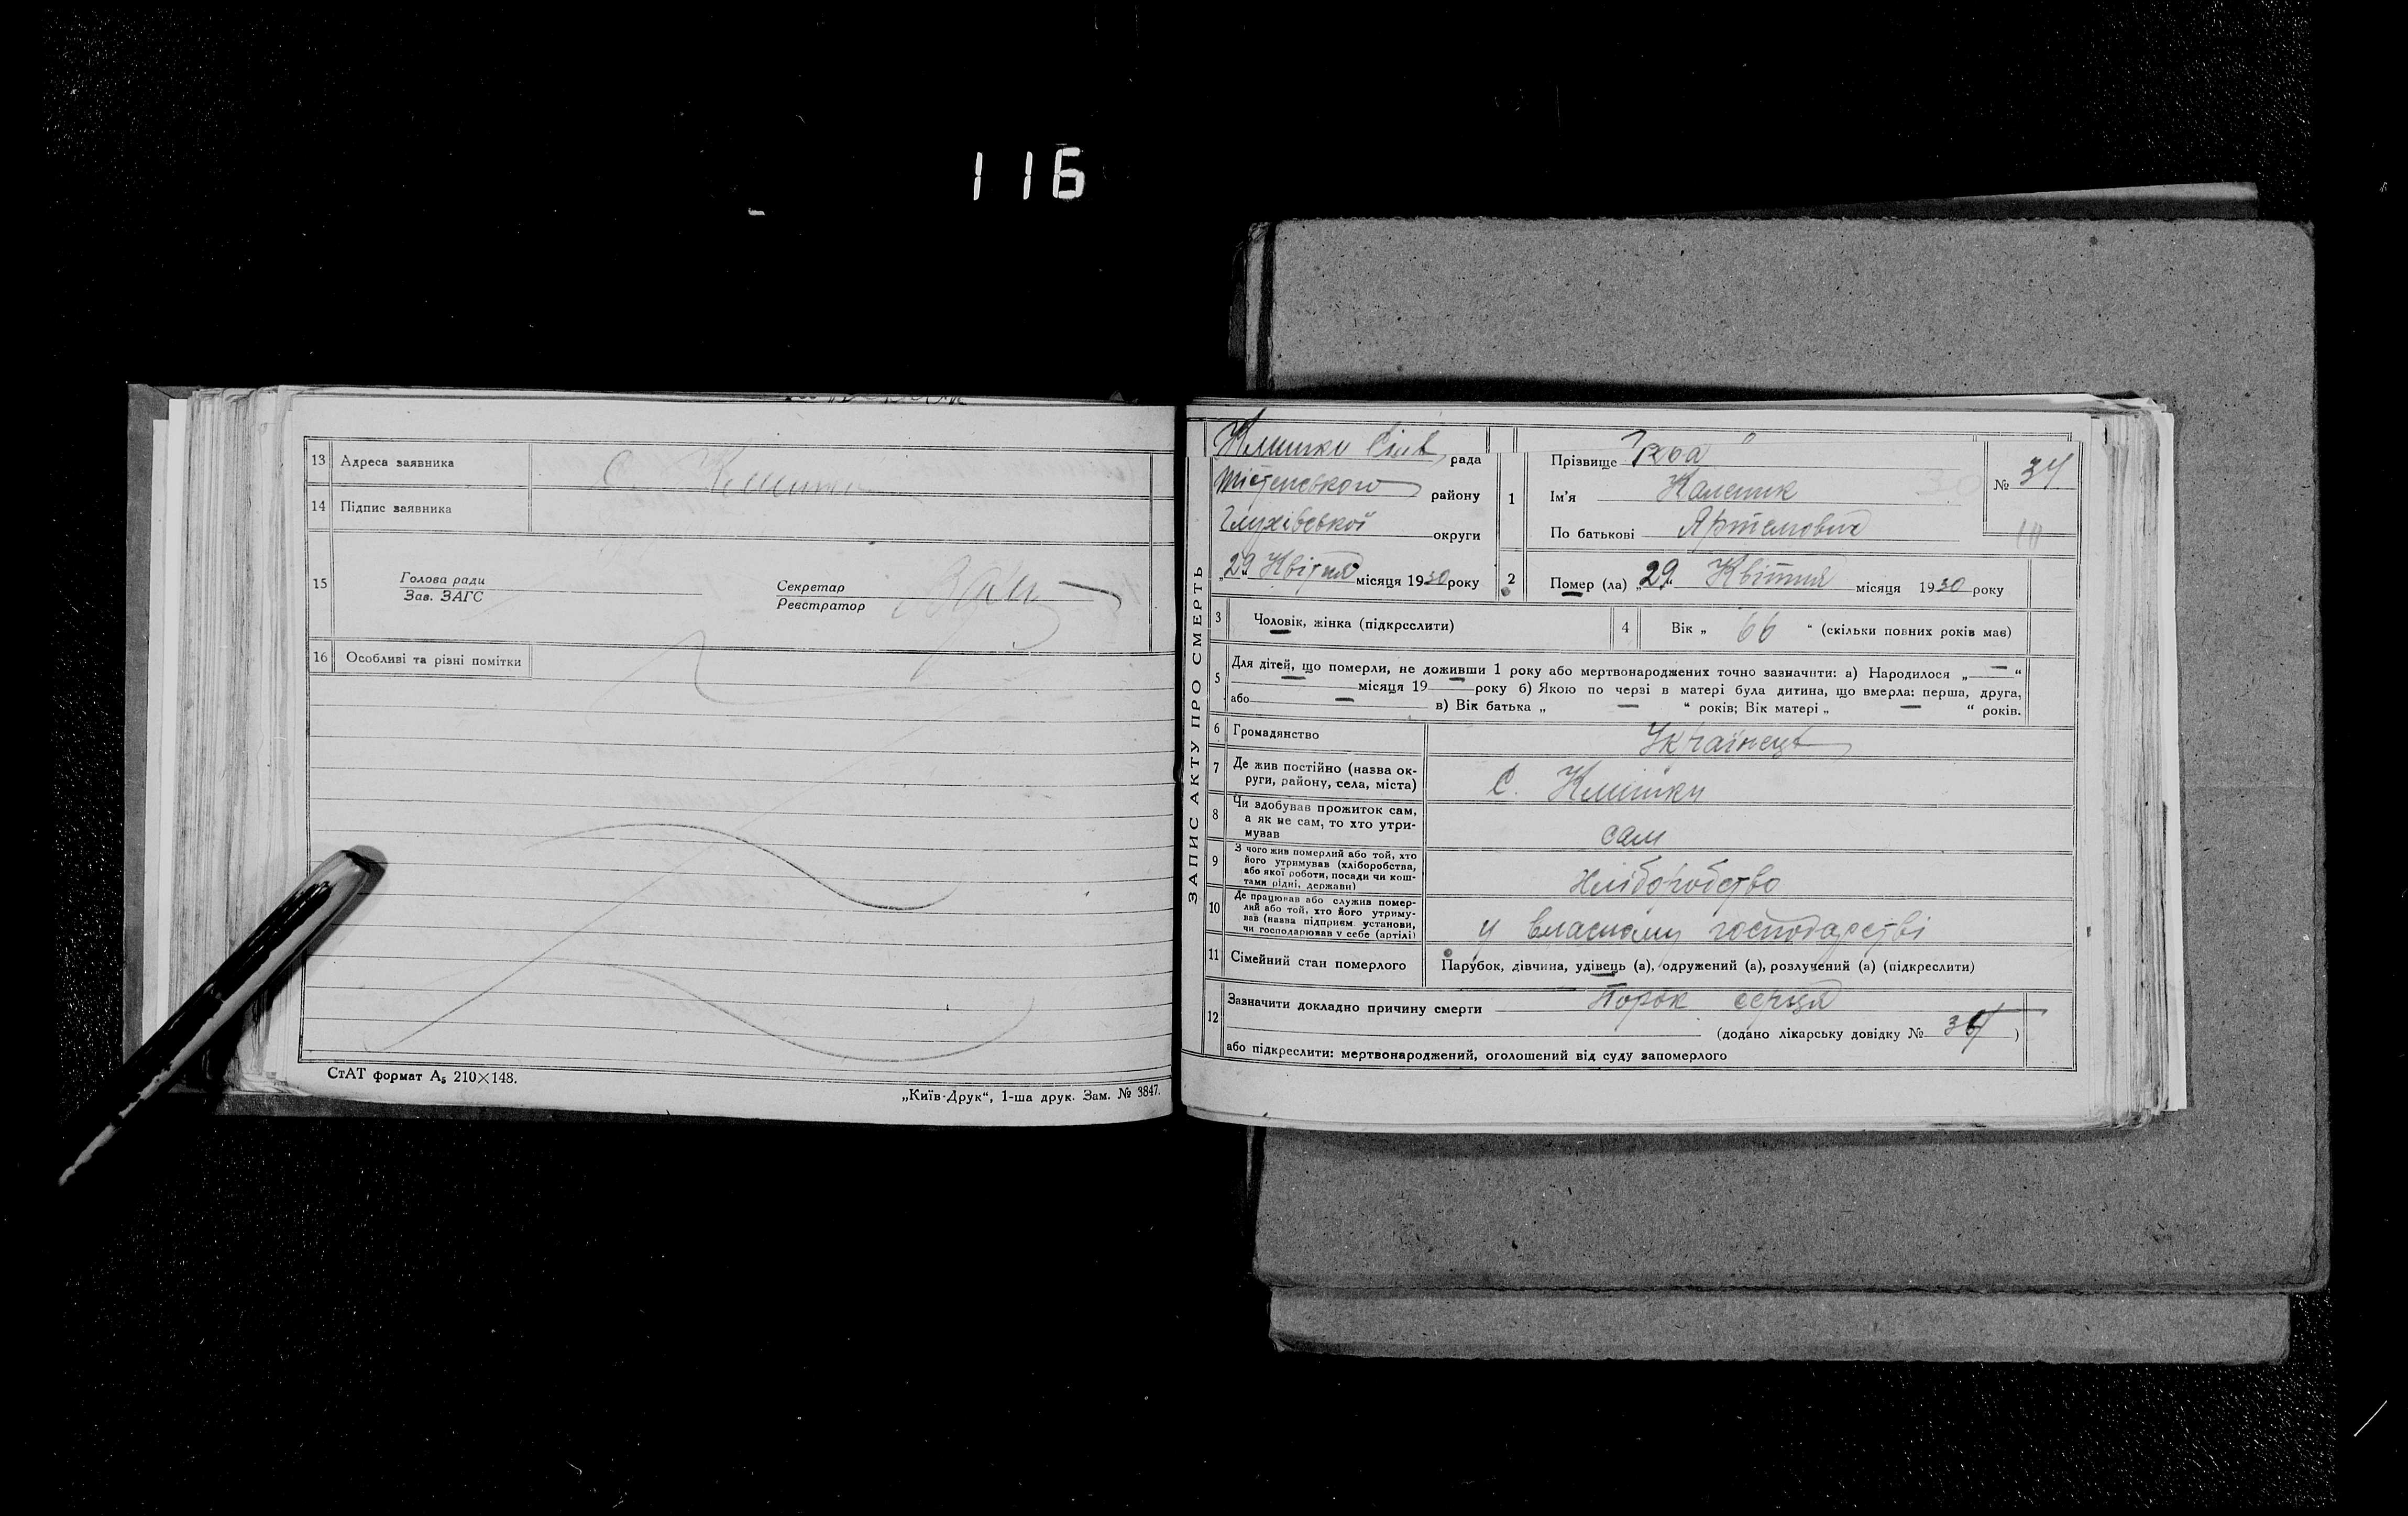 116
13 Адреса заявника С. Клишки
14 Підпис заявника
15 Голова ради
Зав. ЗАГС
Секретар
Реєстратор
16 Особливі та різні помітки
СтАТ формат А₅ 210×148.
„Київ-Друк“, 1-ша друк. Зам. № 3847.
ЗАПИС АКТУ ПРО СМЕРТЬ
Клишки Сіль рада
району
Глухівської округи
„29 Квітня місяця 1930 року
1 Прізвище
Ім'я Каленик
По батькові Артемович
№ 34
10
2 Помер (ла) „29 Квітня місяця 1930 року
3 Чоловік, жінка (підкреслити)
4 Вік „ 66 “ (скільки повних років має)
5 Для дітей, що померли, не доживши 1 року або мертвонароджених точно зазначити: а) Народилося „ — “
місяця 19 року б) Якою по черзі в матері була дитина, що вмерла: перша, друга,
або — в) Вік батька „ — “ років; Вік матері „ — “ років.
6 Громадянство Українець
7 Де жив постійно (назва ок-
руги, району, села, міста) С. Клишки
8 Чи здобував прожиток сам,
а як не сам, то хто утри-
мував сам
9 З чого жив померлий або той, хто
його утримував (хліборобства,
або якої роботи, посади чи кош-
тами рідні, держави) хліборобство
10 Де працював або служив помер-
лий або той, хто його утриму-
вав (назва підприєм. установи,
чи господарював у себе (артілі) у власному господарстві
11 Сімейний стан померлого Парубок, дівчина, удівець (а), одружений (а), розлучений (а) (підкреслити)
12 Зазначити докладно причину смерти Порок серця
(додано лікарську довідку № 34 )
або підкреслити: мертвонароджений, оголошений від суду запомерлого